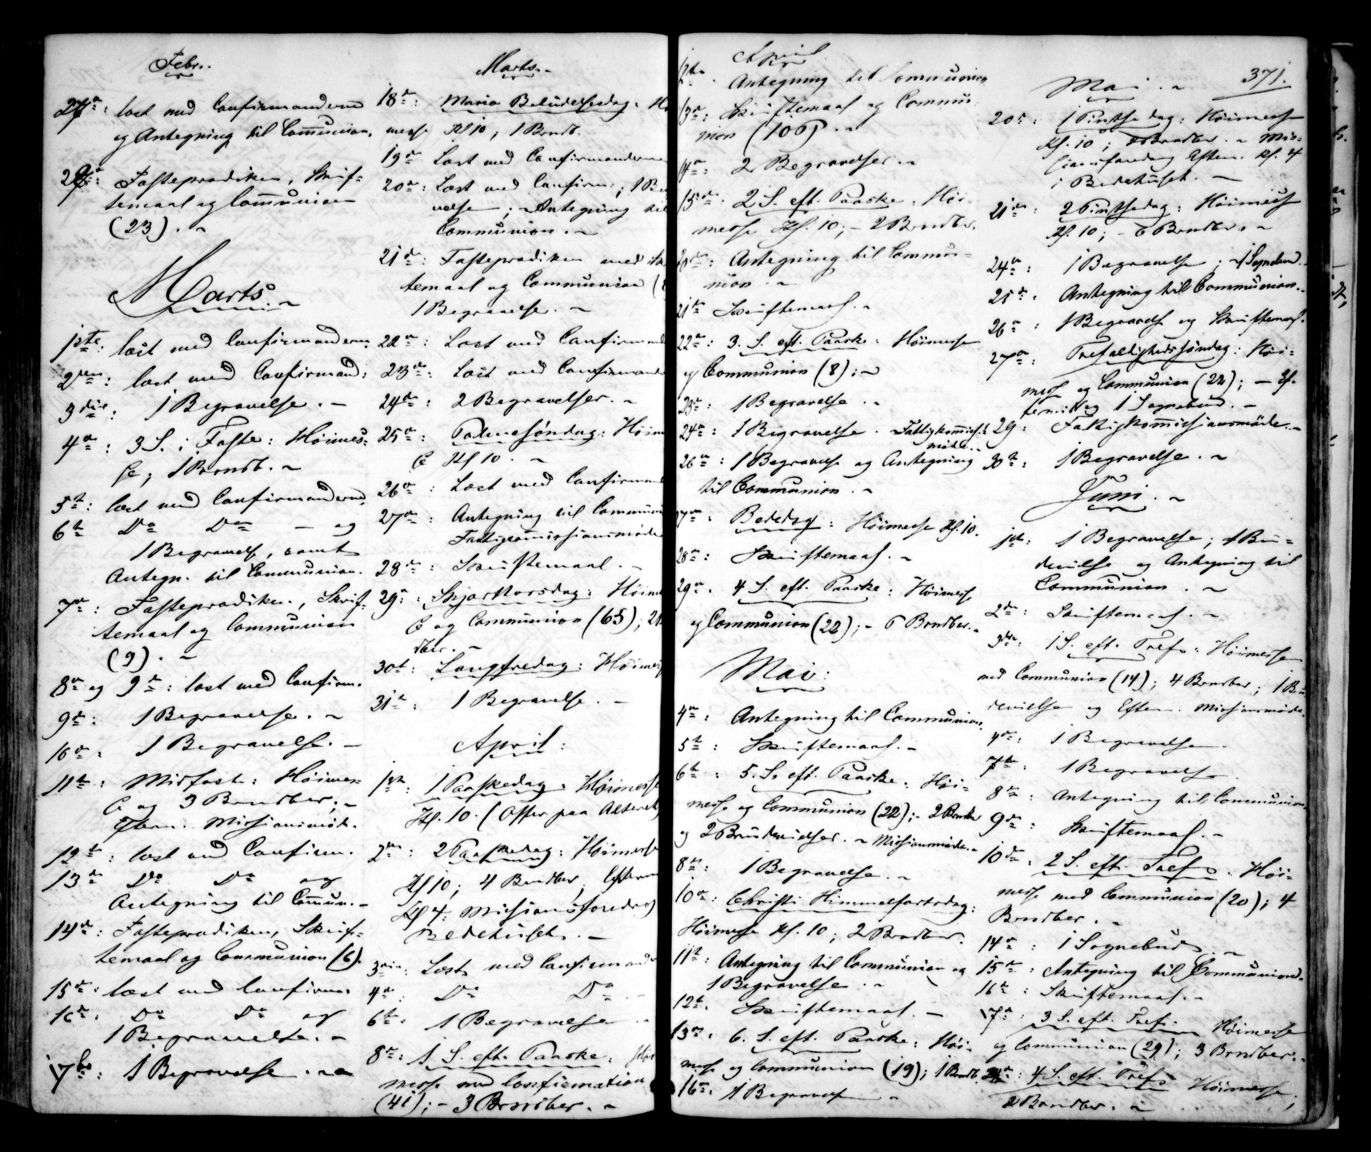 Febr.
27de: læst med Confirmanderne
og Antegning til Communion.
28de: Fasteprædiken, Skrif-
temaal og Communion
(23). -
Marts. -
1ste: læst med Confirmanderne
2den: læst med Confirmand:
3die: 1 Begravelse. -
4de: 3 S. i Faste: Høimes-
se; 1 Brndb. -
5te: læst med Confirmanderne
6te Do Do - og
1 Begravelse, samt
Antegn. til Communion.
7de: Fasteprædiken, Skrif-
temaal og Communion
(9). -
8de og 9de: læst med Confirm.
9de: 1 Begravelse. -
10de: 1 Begravelse. -
11te: Midfaste: Høimes-
se og 3 Brndber. -
Missionsmøde.
12te: læst med Confirm.
13de Do Do og
Antegning til Commun. -
14de: Fasteprædiken, Skrif-
temaal og Communion (6).
15de: læst med Confirm.
16de: Do Do og
1 Begravelse. -
17de: 1 Begravelse. -
Marts. -
18de: Maria Bebudelsesdag: Høi-
messe Kl 10, 1 Brndb.
19de: Læst med Confirmanderne
20de: Læst med Confirm; 1 Be-
velse; Antegning til
Communion. -
21de: Fasteprædiken med Sk
temaal og Communion (
1 Begravelse. -
22de: Læst med Confirmand
23de: Læst med Confirmand
24de: 2 Begravelser. -
25de: Palmesøndag: Høim
Kl 10. -
26de: Læst med Confirmand
27de: Antegning til Communion
Fattigcommissionsmøde
28de: Skriftemaal. -
29de: Skjærtorsdag: Høim
og Communion (65); 2
30te: Langfredag: Høimesse
31te: 1 Begravelse. -
April:
1ste: 1 Paaskedag: Høimesse
Kl. 10. (Offer paa Alteret)
2den: 2 Paaskedag: Høimesse
Kl 10; 4 Brndber, Efterm
Kl 4: Missionsforedrag
Bedehuset. -
3die: Læst med Confirmand
4de: Do Do
6te: 1 Begravelse -
8de: 1 S. eft. Paaske: Høi
messe med Confirmation
(41); - 3 Brndber. -
April
12te Antegning til Communion
13de: Skriftemaal og Commu-
nion (106). -
14de: 2 Begravelser. -
15de: 2 S. eft. Paaske. Høi-
messe Kl. 10; - 2 Brndber.
20de: Antegning til Commu-
nion. -
21de Skriftemaal. -
22de: 3. S. eft. Paaske: Høimesse
og Communion (8); -
23de: 1 Begravelse. -
24de: 1 Begravelse. Fattigkommiss.
møde. -
26de: 1 Begravelse og Antegning
til Communion. -
27de: Bededag: Høimesse Kl. 10.
28de: Skriftemaal. -
29de: 4 S. eft. Paaske: Høimesse
og Communion (22); - 6 Brndber. -
Mai:
4de: Antegning til Communion.
5te: Skriftemaal. -
6te: 5. S. eft. Paaske: Høi-
messe og Communion (22); - 2 Brndber
og 2 Brudevielser. - Missionsmøde. -
8de: 1 Begravelse. -
10de: Christi Himmelfartsdag:
Høimesse Kl. 10; 2 Brndber.
11te: Antegning til Communion og
1 Begravelse. -
12te: Skriftemaal. -
13de: 6. S. eft. Paaske: Høi-
messe og Communion (19); 1 Brndb.
16de: 1 Begravelse -
371.
Mai. -
20de: 1 Pintsedag: Høimesse
Kl. 10; Brndber. - Mis-
Efterm. Kl. 4
i Bedehuset. -
21de: 2 Pintsedag: Høimesse
Kl. 10; - 6 Brndber. -
24de: 1 Begravelse;
25de: Antegning til Communion. -
26de: 1 Begravelse og Skriftemaal.
27de: Trefoldighedssøndag: Høi-
messe og Communion (22); -
og 1 Sognebud. -
29: Fattigkomissionsmøde. -
30te: 1 Begravelse. -
Juni. -
1ste: 1 Begravelse; 1 Bru-
devielse og Antegning til
Communion. -
2den: Skriftemaal. -
3die: 1 S. eft. Tref.: Høimesse
med Communion (14); 4 Brndber; 1 Bru-
devielse og Efterm. Missionsmøde.
4de: 1 Begravelse.
7de: 1 Begravelse
8de: Antegning til Communion
9de: Skriftemaal. -
10de: 2 S. eft. Tref. Høi-
messe med Communion (20); 4
Brndber. -
14de: 1 Sognebud. -
15de: Antegning til Communion.
16de: Skriftemaal. -
17de: 3 S. eft. Tref. Høimesse
og Communion (29); 3 Brndber. -
24de: 4 S. eft. Tref. Høimesse;
2 Brndber. -